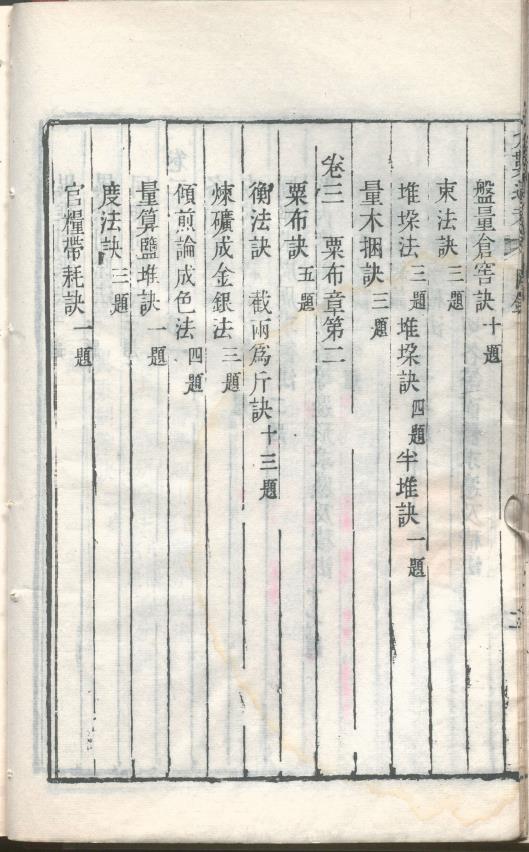 盤量倉窖訣十題
束法訣三題
堆垛法三題堆垛訣四題半堆訣一題
量木捆訣三題
卷三 粟布章第二
粟布訣五題
衡法訣 截兩爲斤訣十三題
煉礦成金銀法三題
傾煎論成色法四題
量算鹽堆訣一題
度法訣三題
官糧帶耗訣一題